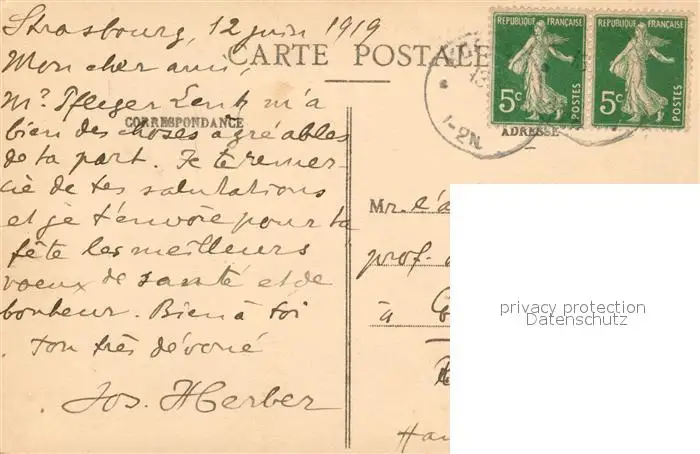 Strasbourg, 12 juin 1919
CARTE POSTALE
Mon cher ami,
Mr Pfleger Lentz m'a
CORRESPONDANCE
bien des choses agréables
de ta part. Je te remer-
cie de tes salutations
et je t'envoie pour ta
fête les meilleurs
voeux de santé et de
bonheur. Bien à toi
ton très dévoué
Jos. Herber
REPUBLIQUE FRANÇAISE
5c POSTES
REPUBLIQUE FRANÇAISE
5c POSTES
1-2N
ADRESSE
Mr. l'a
prof.
à
Hau
privacy protection
Datenschutz